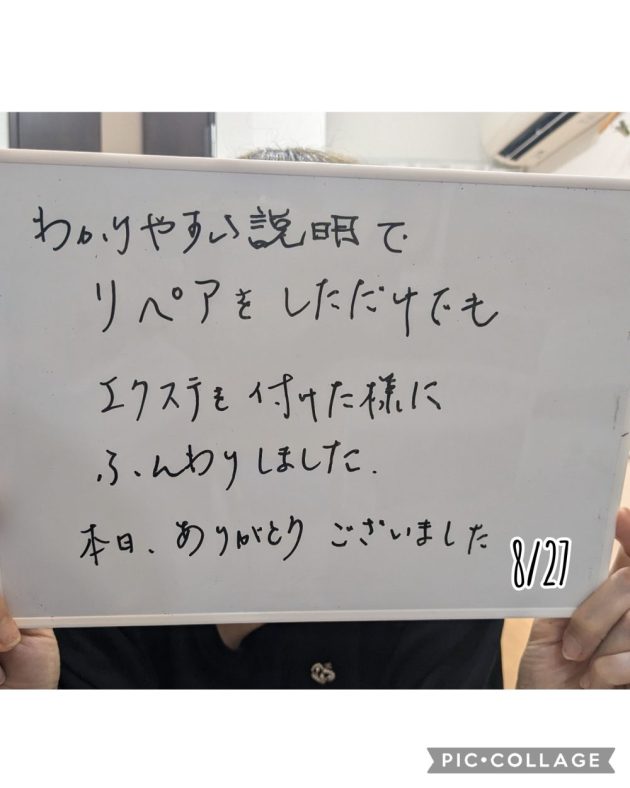 わかりやすい説明で
リペアをしただけでも
エクステを付けた様に
ふんわりしました.
本日、ありがとうございました
8/27
PIC•COLLAGE